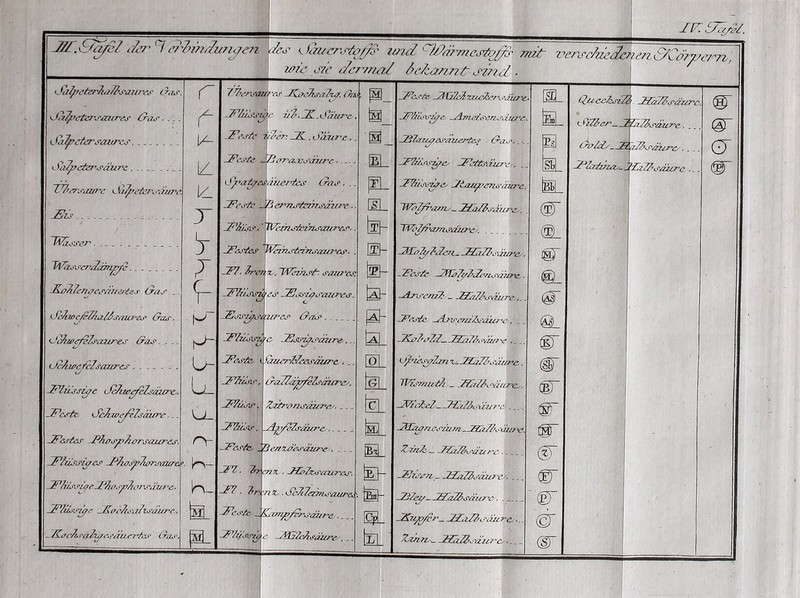 IV. Tafel.
III. Tafel der Verbindungen des Säuerstoffs und Wärmestoffs mit verschiedenen Körpern,
wie sie dermal bekannt sind.
Salpeterhalbsaures Gas.
Salpetersaures Gas
Salpetersaures
Salpetersäure
Übersaure Salpetersäure
Eis
Wasser
Wasserdämpfe
Kohlengesäuertes Gas
Schwefelhalbsaures Gas.
Schwefelsaures Gas
Schwefelsaures
Flüssige Schwefelsäure.
Feste Schwefelsäure
Festes Phosphorsaures.
Flüssiges Phosphorsaures.
Flüssige Phosphorsäure.
Flüssige Kochsalzsäure. M
Kochsalzgesäuertes Gas. M
Übersaures Kochsalzg. Gas. M
Flüssige üb. K. Säure. M
Feste über. K. Säure. M
Feste Boraxsäure B
Spatgesäuertes Gas F
Feste Bernsteinsäure S
Flüss. Weinsteinsaures. T
Festes Weinsteinsaures. T
Fl. brenz. Weinst. saures T
Flüssiges Essigsaures. A
Essigsaures Gas A
Flüssige Essigsäure A
Feste Sauerkleesäure O
Flüss. Galläpfelsäure. G
Flüss. Zitronsäure C
Flüss. Apfelsäure M
Feste Benzoesäure Bz
Fl. brenz. Holzsaures. B
Fl. brenz. Schleimsaures.
Feste Kampfersäure Cp
Flüssige Milchsäure L
Feste Milchzuckersäure. SL
Flüssige Ameisensäure.
Blaugesäuertes Gas
Flüssige Fettsäure Sb
Flüssige Raupensäure. Bb
Wolfram-Halbsäure T
Wolframsäure T
Molybden-Halbsäure. M
Feste Molybdensäure M
Arsenik-Halbsäure As
Feste Arseniksäure As
Kobold-Halbsäure K
Spiesglanz-Halbsäure. Sb
Wismuth-Halbsäure. B
Nickel-Halbsäure N
Magnesium-Halbsäure. M
Zink-Halbsäure Z
Eisen-Halbsäure F
Bley-Halbsäure P
Kupfer-Halbsäure C
Zinn-Halbsäure S
Quecksilb Halbsäure. H
Silber-Halbsäure A
Gold-Halbsäure O
Platina-Halbsäure P